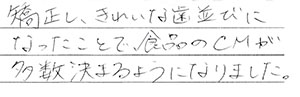 矯正し、きれいな歯並びに
なったことで食品のCMが
多数決まるようになりました。